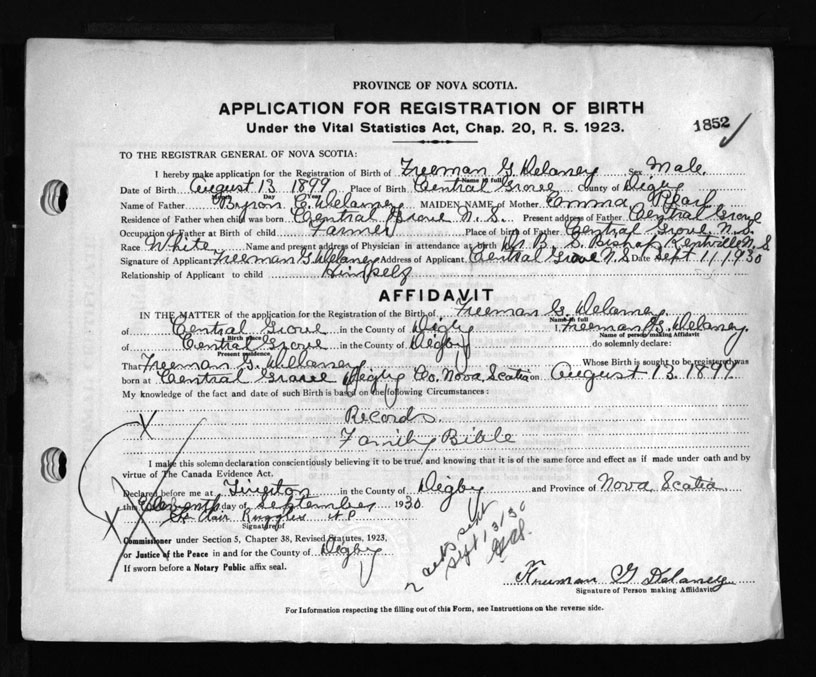 PROVINCE OF NOVA SCOTIA.
APPLICATION FOR REGISTRATION OF BIRTH
Under the Vital Statistics Act, Chap. 20, R. S. 1923.
1852
TO THE REGISTRAR GENERAL OF NOVA SCOTIA:
I hereby make application for the Registration of Birth of Freeman G. Delaney Sex Male
Name in full
Date of Birth August 13 1899 Place of Birth Central Grove County of Digby
Day Year
Name of Father Byron C. Delaney MAIDEN NAME of Mother Emma Pearl
Residence of Father when child was born Central Grove N. S. Present address of Father Central Grove
Occupation of Father at Birth of child Farmer Place of birth of Father Central Grove N. S.
Race White Name and present address of Physician in attendance at birth Dr. B. S. Bishop Kentville N. S
Signature of Applicant Freeman G. Delaney Address of Applicant Central Grove N. S Date Sept 11, 1930
Relationship of Applicant to child Himself
AFFIDAVIT
IN THE MATTER of the application for the Registration of the Birth of Freeman G. Delaney
Name in full
of Central Grove in the County of Digby I, Freeman G. Delaney
Birth place Name of person making Affidavit
of Central Grove in the County of Degby do solemnly declare:
Present residence
That Freeman G. Delaney Whose Birth is sought to be registered was
born at Central Grove Digby Co. Nova Scatia on August 13. 1899
My knowledge of the fact and date of such Birth is based on the following Circumstances:
Records.
Family Bible
I make this solemn declaration conscientiously believing it to be true, and knowing that it is of the same force and effect as if made under oath and by
virtue of The Canada Evidence Act.
Declared before me at Tiverton in the County of Digby and Province of Nova Scatia
this Eleventh day of September 1930
St Clair Ruggles J P
Signature of
Commissioner under Section 5, Chapter 38, Revised Statutes, 1923.
or Justice of the Peace in and for the County of Digby
If sworn before a Notary Public affix seal.
2 certs sent
Sept 13/30
Freeman G Delaney
Signature of Person making Affidavit
For Information respecting the filling out of this Form, see Instructions on the reverse side.